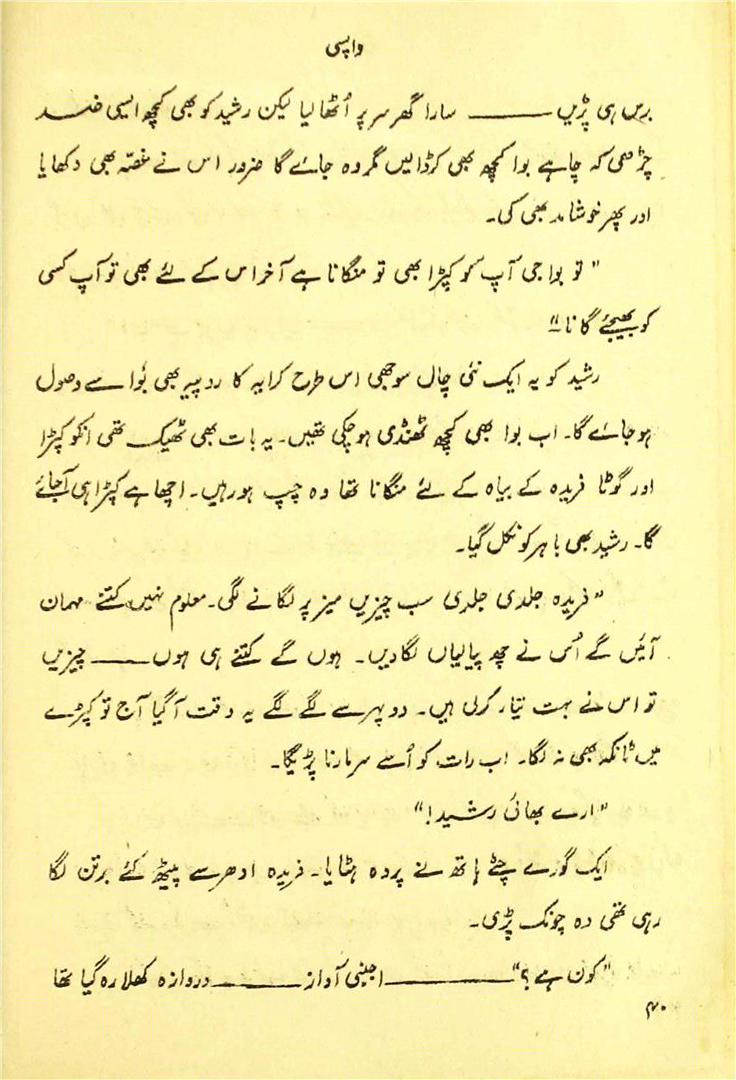 واپسی
برس ہی پڑیں ——— سارا گھر سر پر اُٹھا لیا لیکن رشید کو بھی کچھ ایسی ضد
چڑھی کہ چاہے بوا کچھ بھی کر ڈالیں مگر وہ جائے گا ضرور اس نے غصّہ بھی دکھایا
اور پھر خوشامد بھی کی۔
"تو بوا جی آپ کو کپڑا بھی تو منگانا ہے آخر اس کے لئے بھی تو آپ کسی
کو بھیجئے گا نا"
رشید کو یہ ایک نئی چال سوجھی اس طرح کرایہ کا روپیہ بھی بُوا سے وصول
ہو جائے گا۔ اب بوا بھی کچھ ٹھنڈی ہو چکی تھیں۔ یہ بات بھی ٹھیک تھی انکو کپڑا
اور گوٹا فریدہ کے بیاہ کے لئے منگانا تھا وہ چپ ہو رہیں۔ اچھا ہے کپڑا ہی آجائے
گا۔ رشید بھی باہر کو نکل گیا۔
"فریدہ جلدی جلدی سب چیزیں میز پر لگانے لگی۔ معلوم نہیں کتنے مہمان
آئیں گے اُس نے چھ پیالیاں لگا دیں۔ ہوں گے کتنے ہی ہوں ——— چیزیں
تو اس نے بہت تیار کرلی ہیں۔ دوپہر سے لگے لگے یہ وقت آگیا آج تو کپڑے
میں ٹانکہ بھی نہ لگا۔ اب رات کو اُسے سر مارنا پڑیگا۔
"ارے بھائی رشید!"
ایک گورے چٹے ہاتھ نے پردہ ہٹایا۔ فریدہ ادھر سے پیٹھ کئے برتن لگا
رہی تھی وہ چونک پڑی۔
"کون ہے؟" ——— اجنبی آواز ——— دروازہ کھلا رہ گیا تھا
۴۰